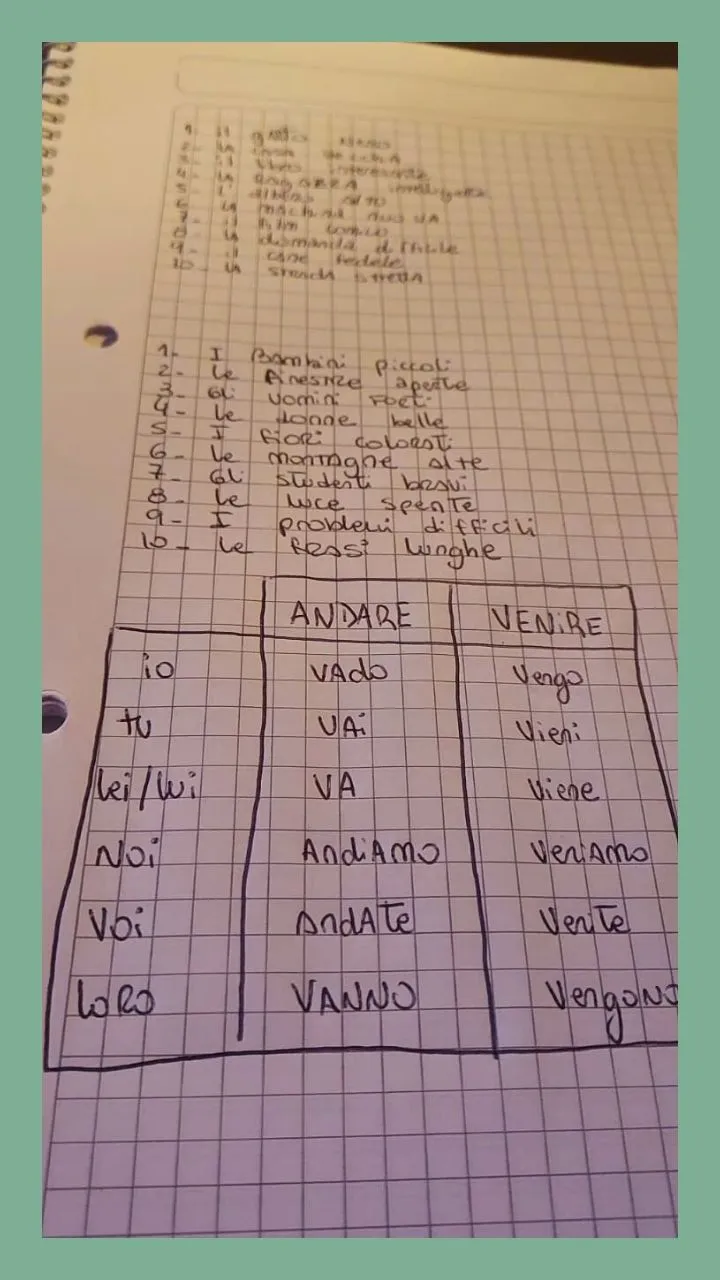 1- il gatto nero
2- la casa vecchia
3- il libro interessante
4- la ragazza intelligente
5- l' albero alto
6- la macchina nuova
7- il film comico
8- la domanda difficile
9- il cane fedele
10- la strada stretta
1- I Bambini piccoli
2- Le finestre aperte
3- Gli uomini forti
4- Le donne belle
5- I fiori colorati
6- Le montagne alte
7- Gli studenti bravi
8- Le luce spente
9- I problemi difficili
10- Le frasi lunghe
ANDARE VENIRE
io VAdo Vengo
tu VAi Vieni
lei/lui VA Viene
Noi AndiAmo VeniAmo
Voi AndATe VeniTe
LoRo VANNO VengoNO